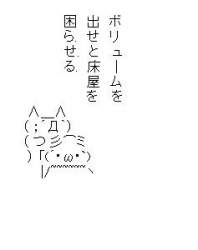 ボリュームを
出せと床屋を
困らせる